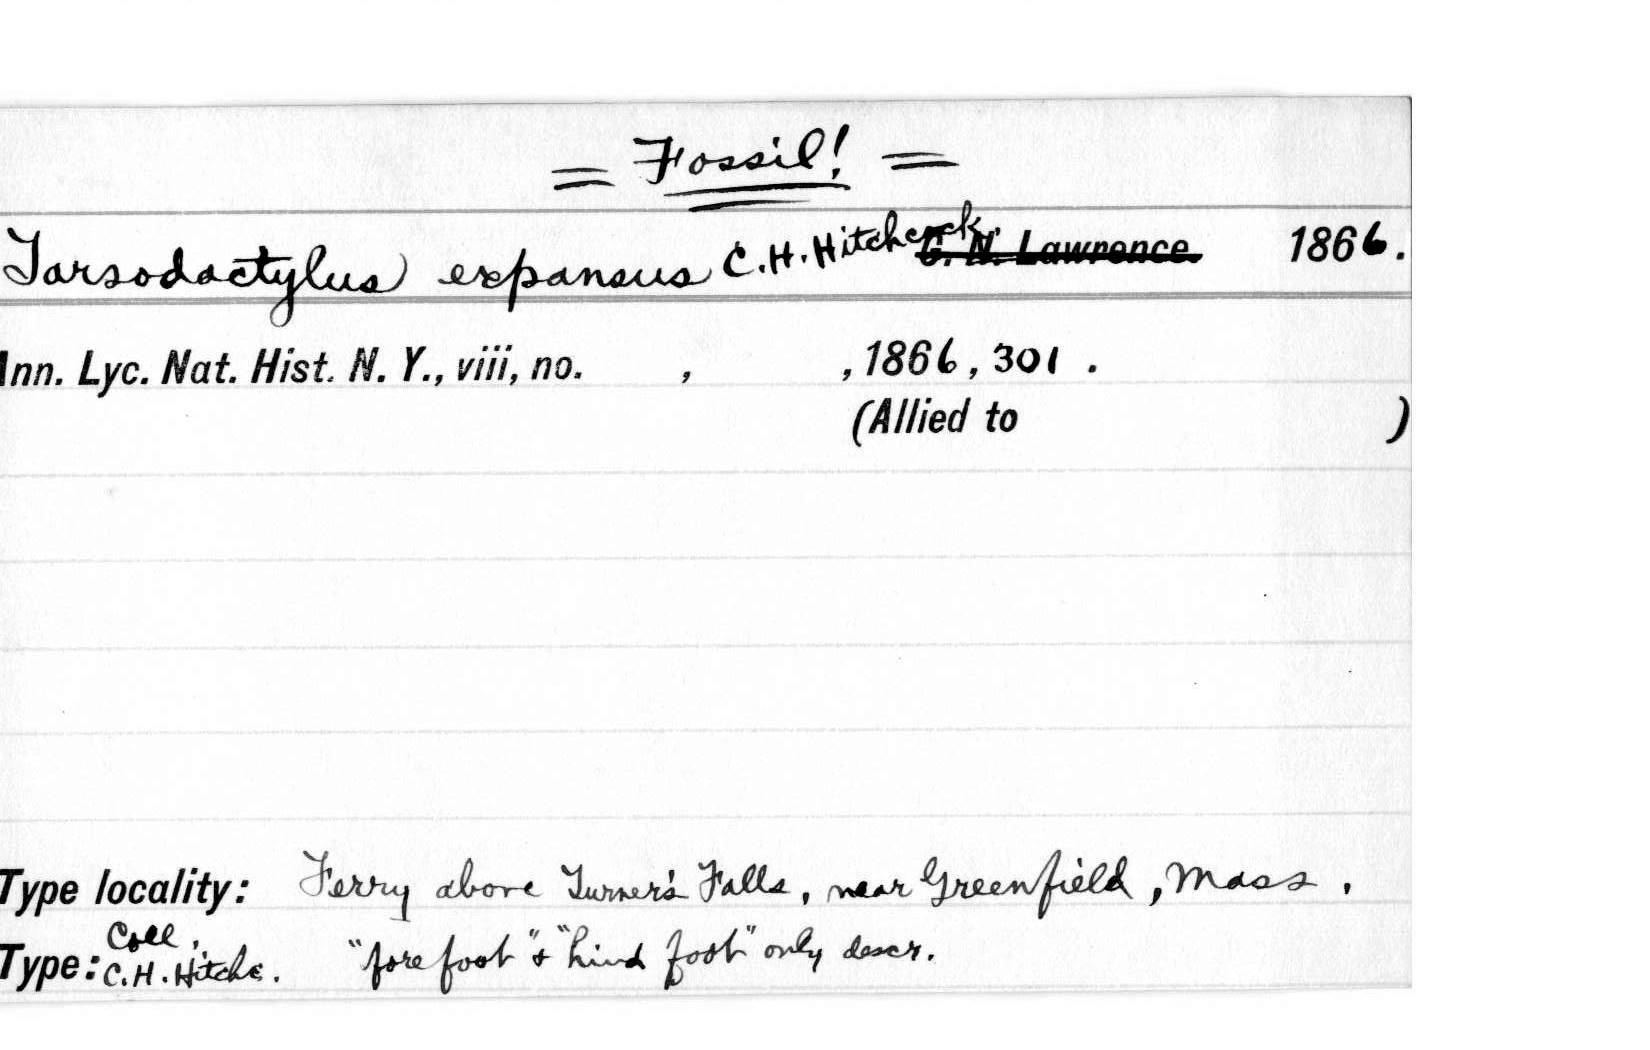 = Fossil! =
Tarsodactylus expansus C.H. Hitchcock G. N. Lawrence. 1866.
Ann. Lyc. Nat. Hist. N. Y., viii, no. , , 1866, 301 .
(Allied to )
Type locality: Ferry above Turner's Falls, near Greenfield, Mass.
Type: Coll. C.H. Hitchc. "fore foot" & "hind foot" only descr.